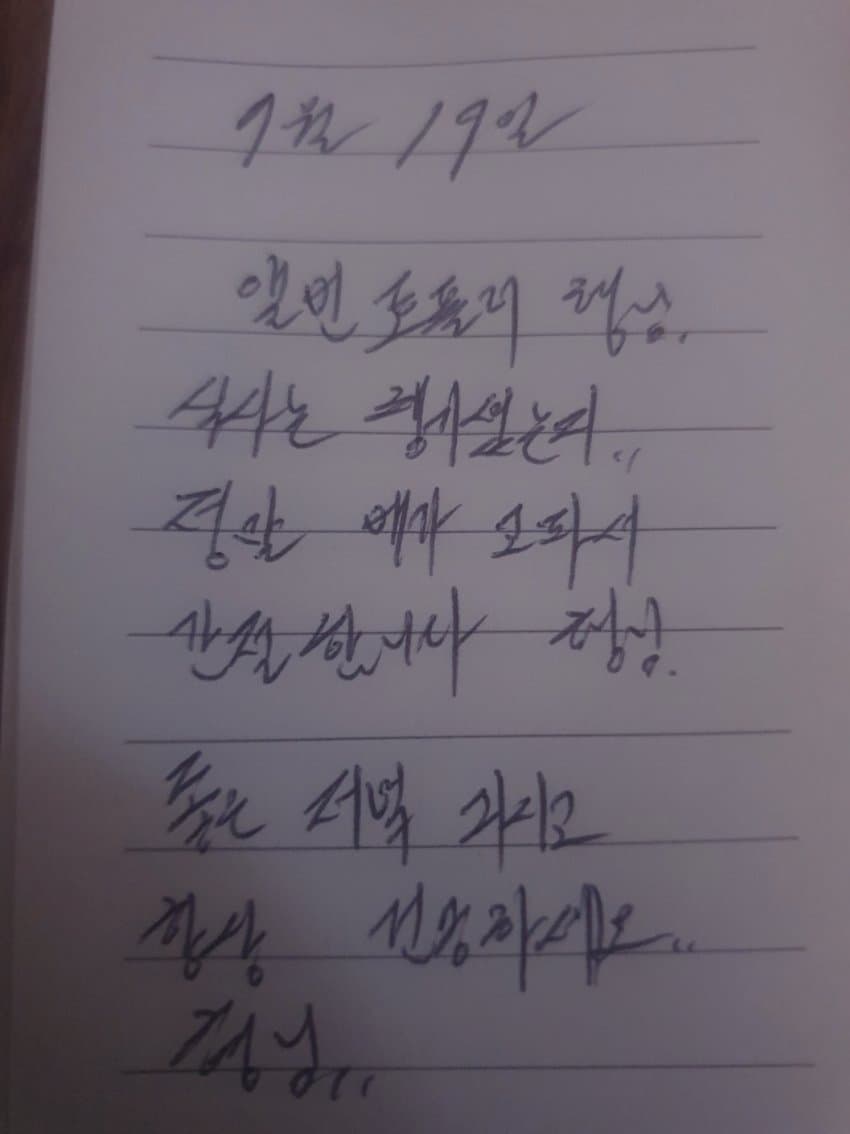 7월 19일
앨빈 토플러 형님.
식사는 챙기셨는지..
정말 배가 고파서
간절합니다 형님.
좋은 저녁 가지고
항상 건강하세요..
형님..